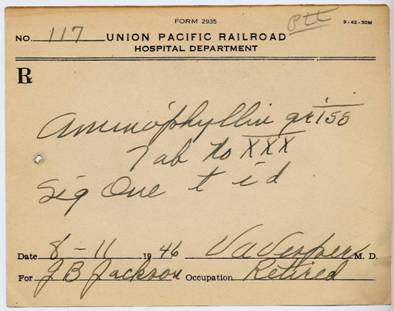 FORM 2935
Ptt
9-42-50M
NO. 117 UNION PACIFIC RAILROAD
HOSPITAL DEPARTMENT
℞
Aminophyllin gr iss
Tab to XXX
Sig One t i d
Date 8-11 1946 M. D.
For J B Jackson Occupation Retired